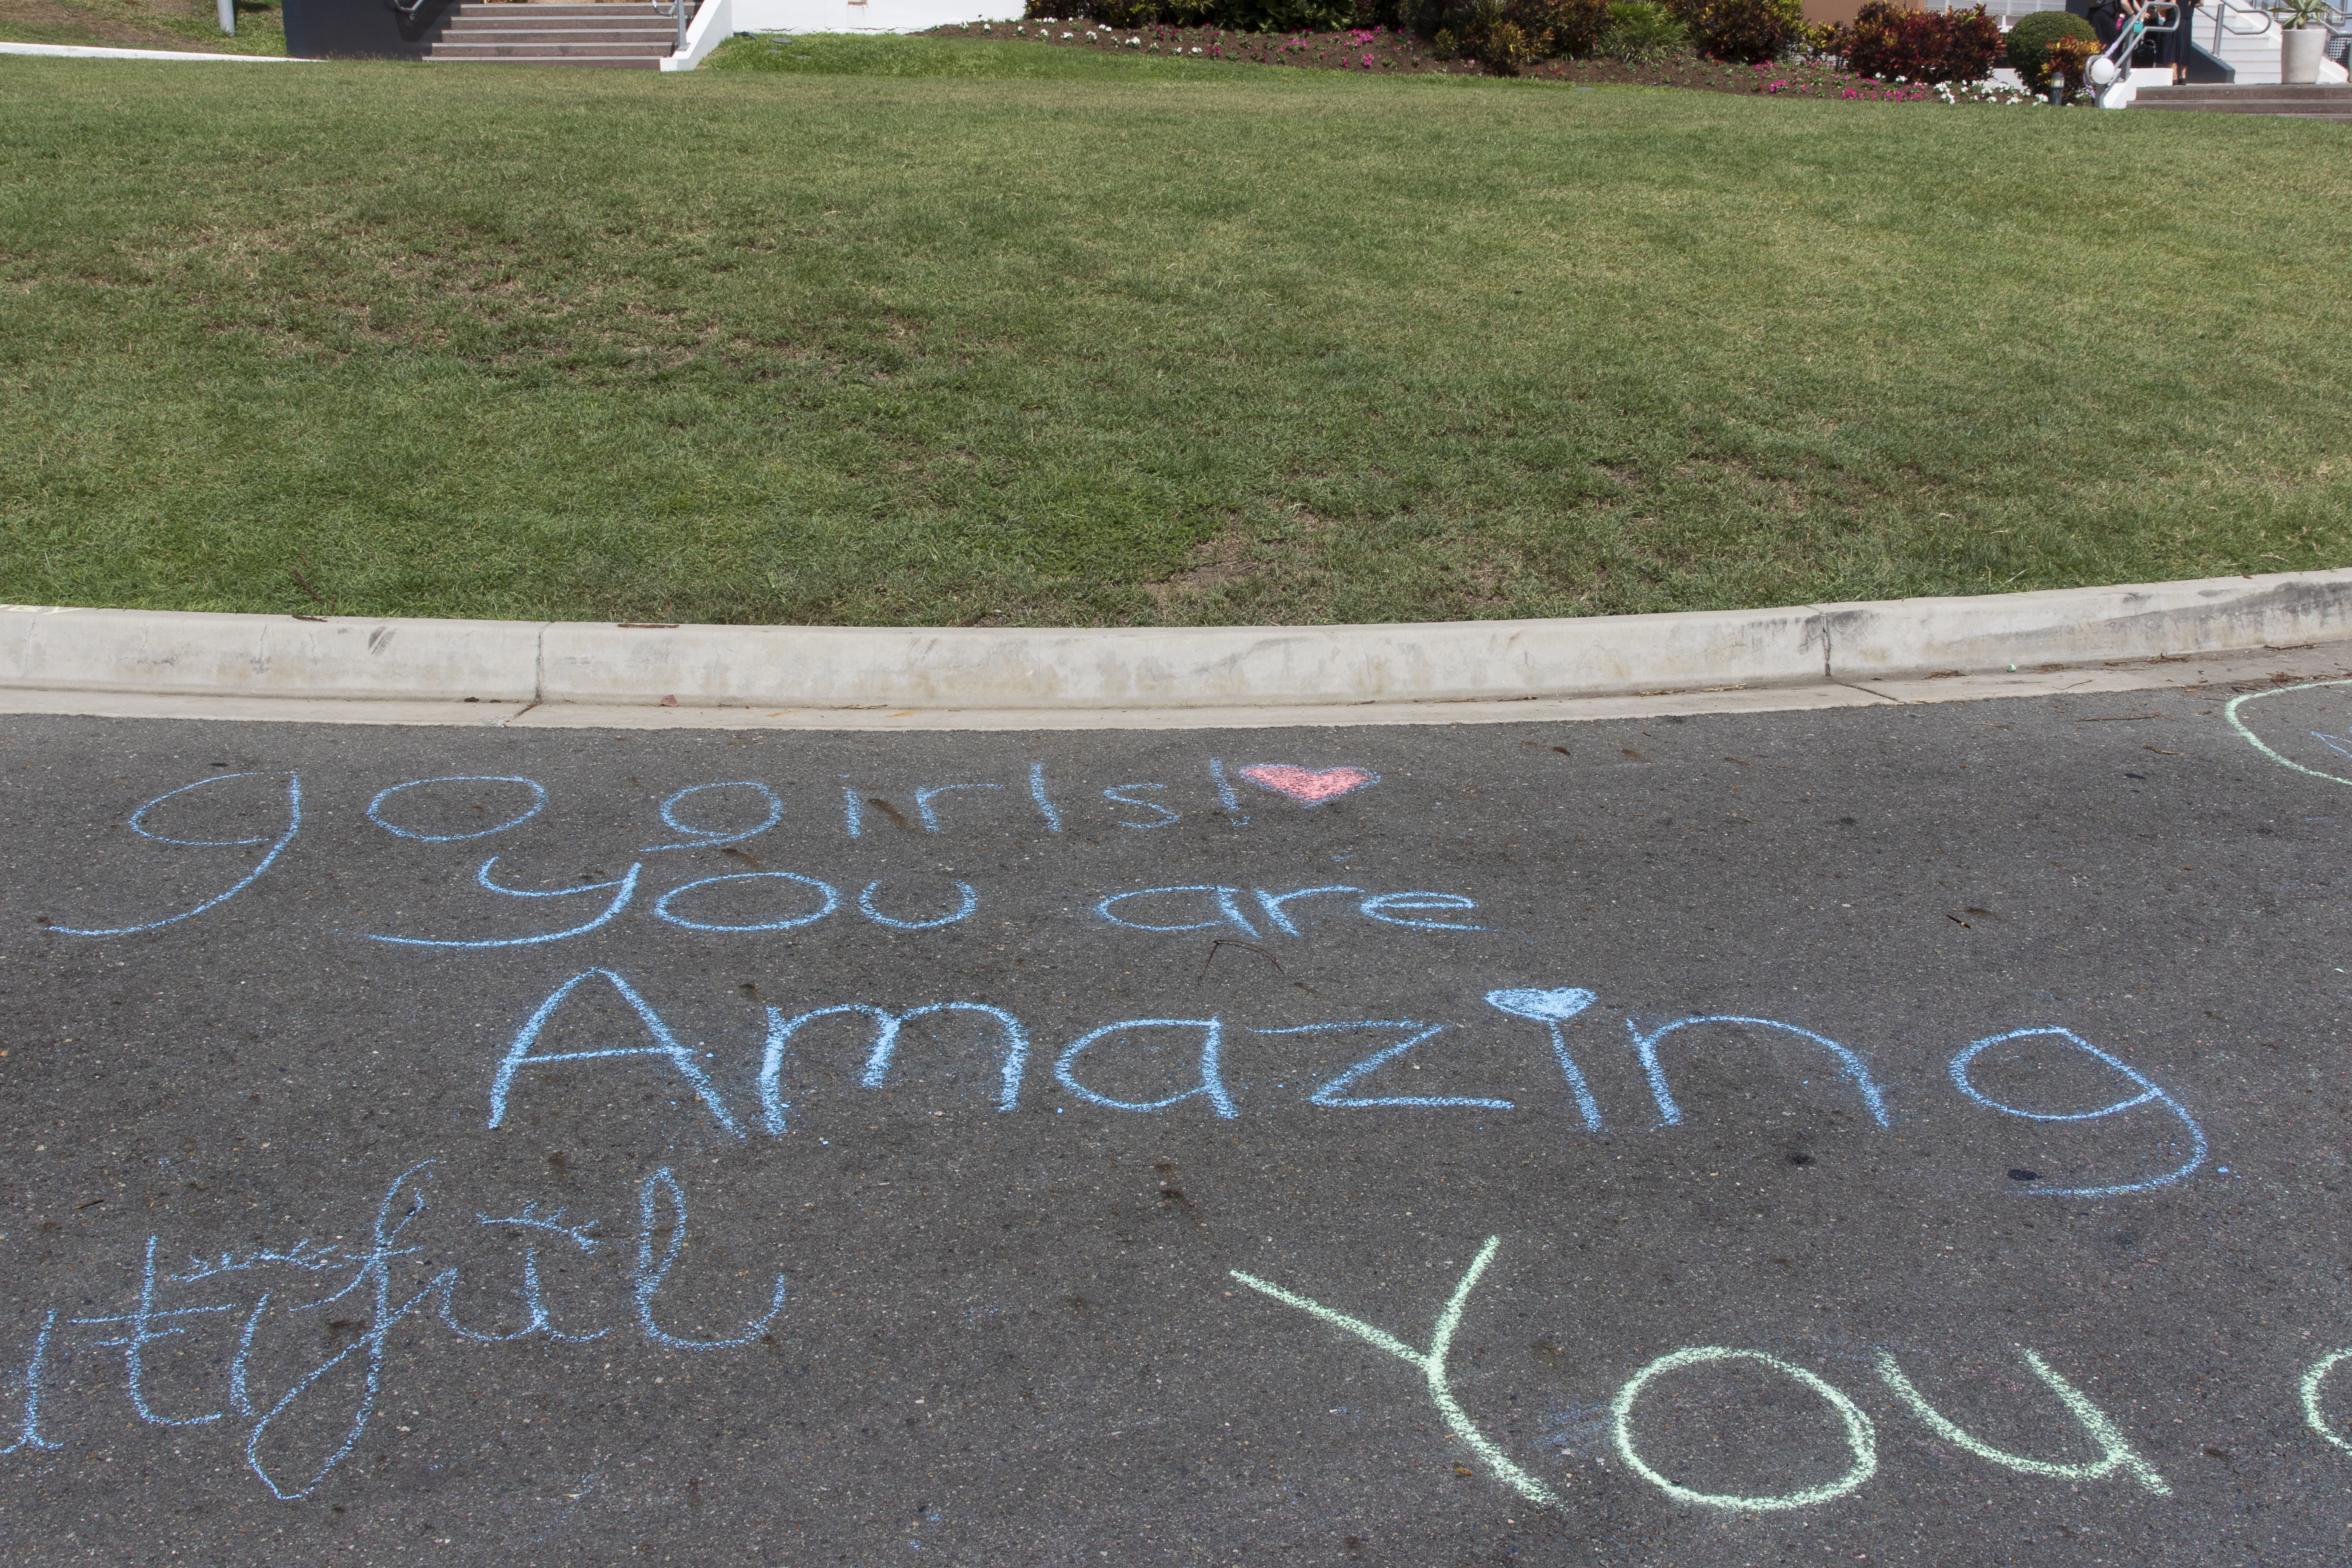 go girls!
you are
Amazing
utiful
You